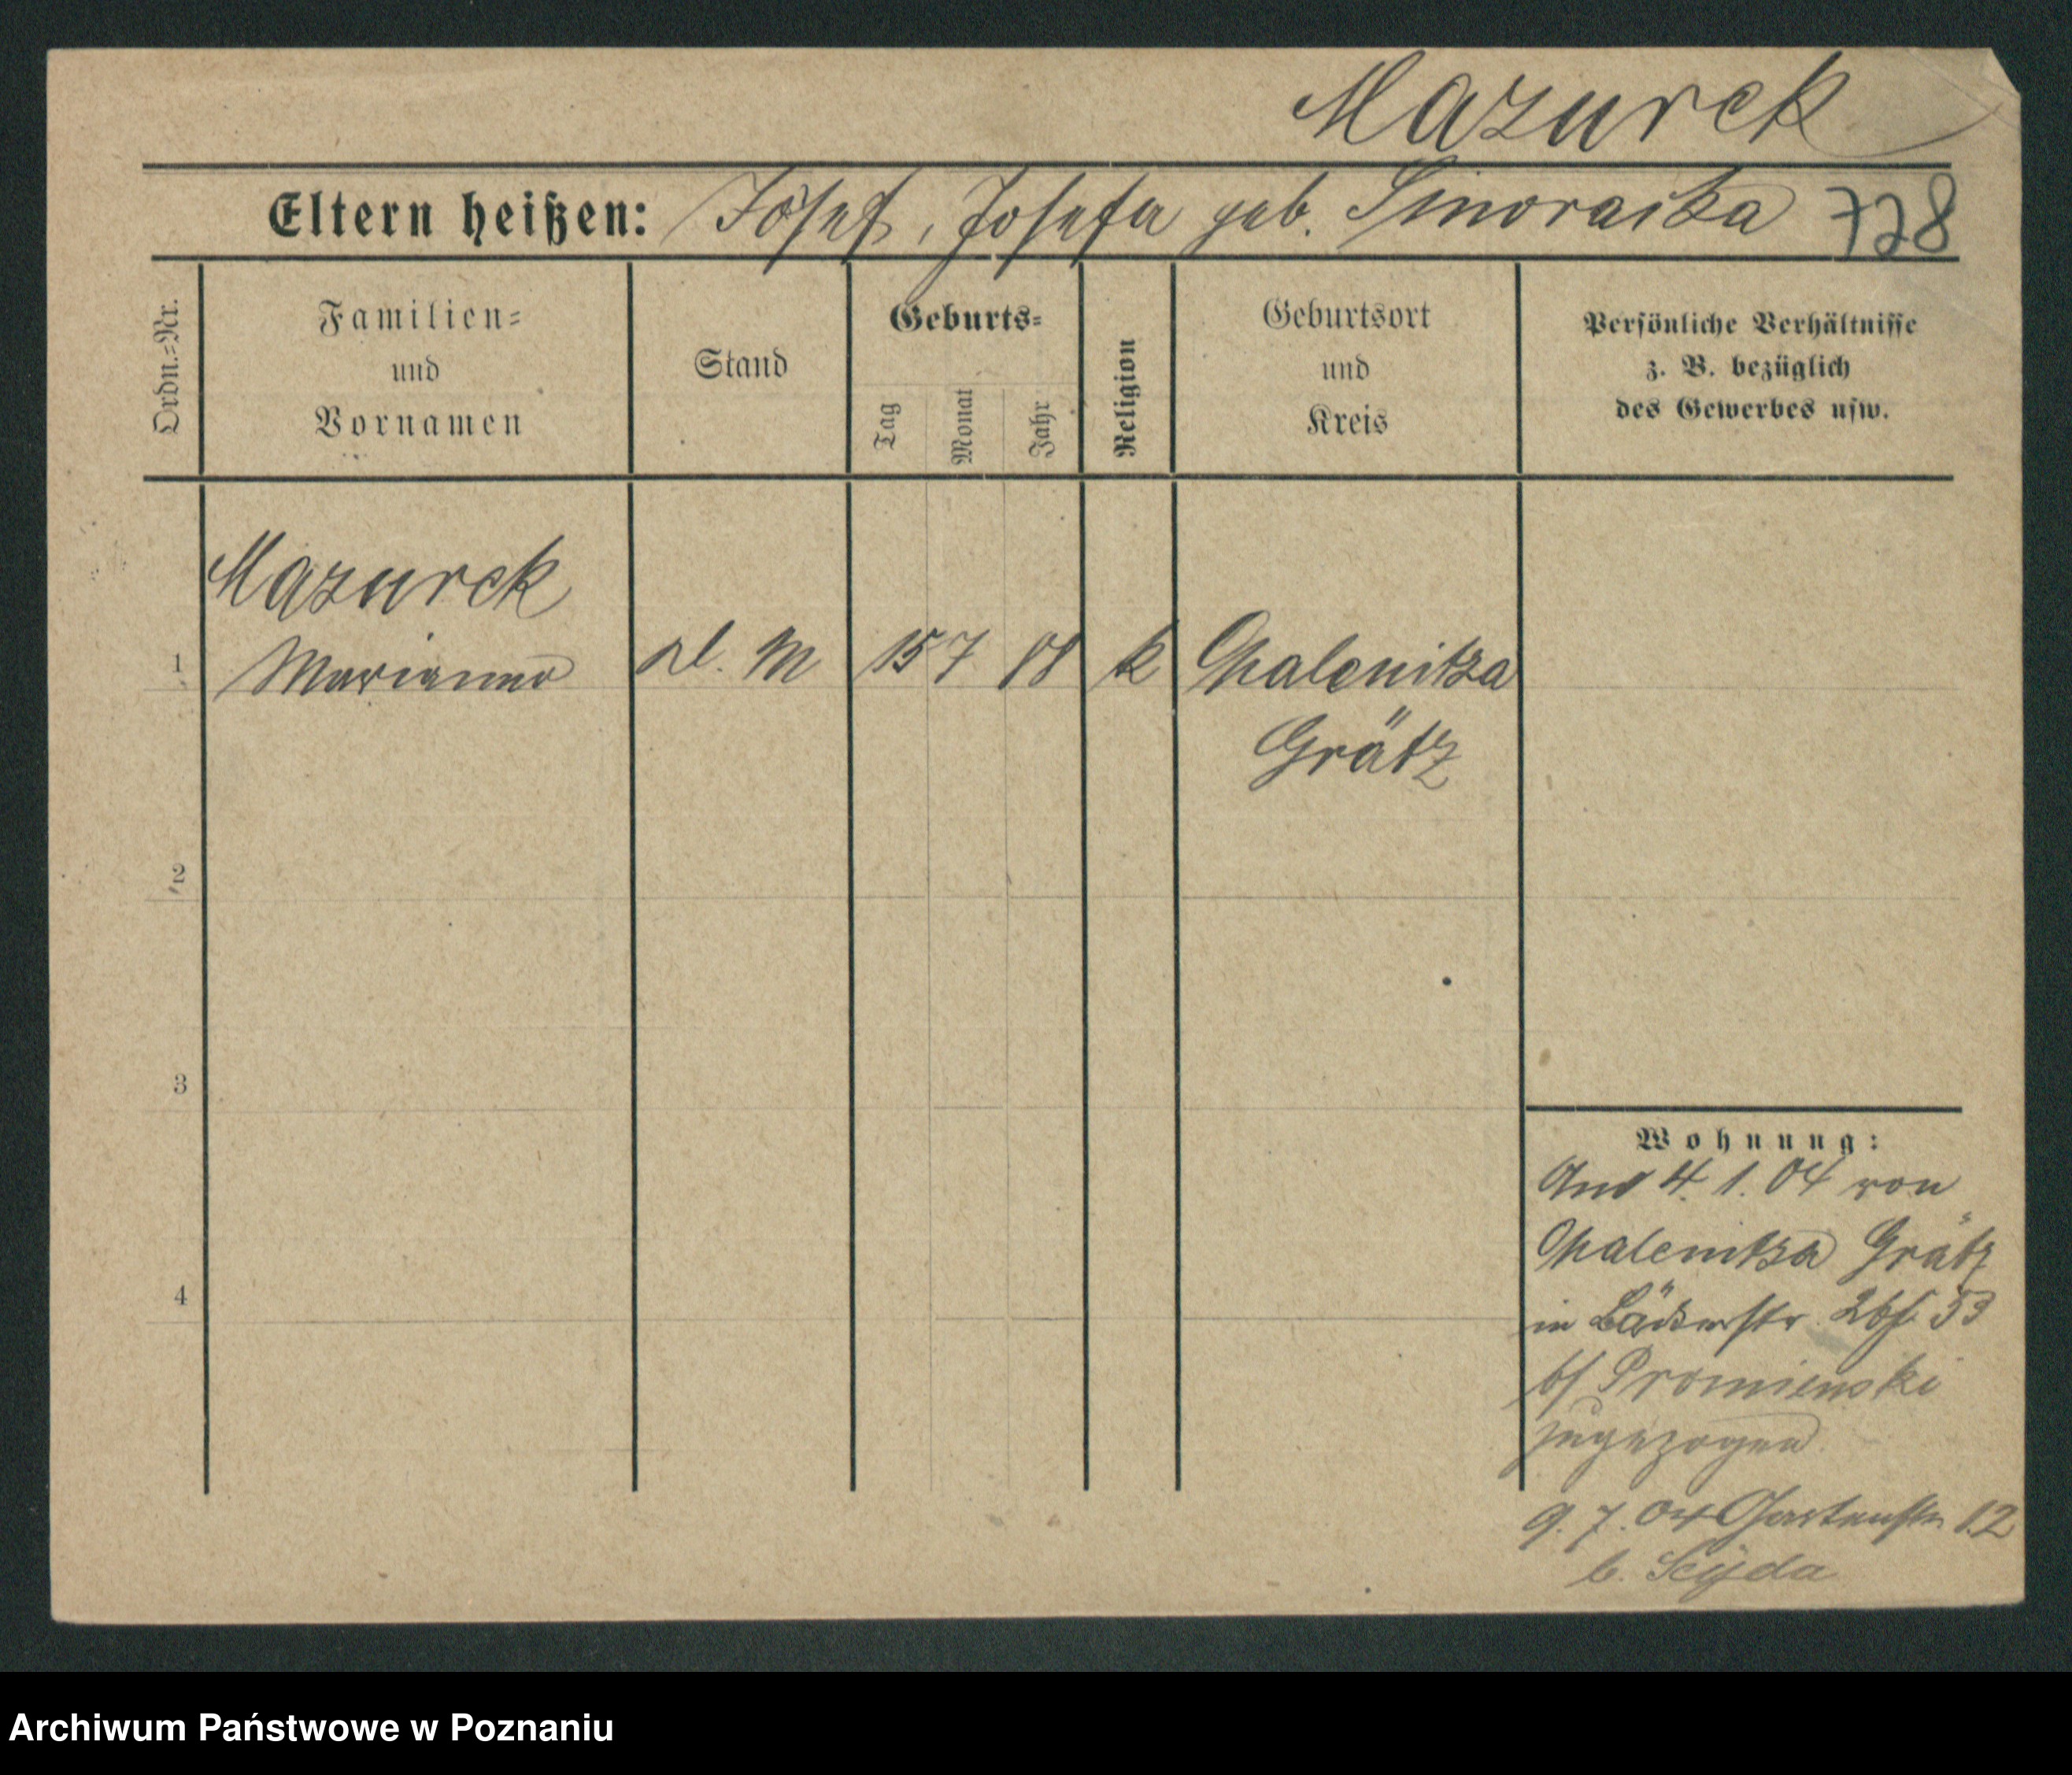 Mazurek
Eltern heißen: Josef, Josefa geb. Smoraska 728
Ordn.=Nr.
Familien=
und
Vornamen
Stand
Geburts=
Tag
Monat
Jahr
Religion
Geburtsort
und
Kreis
Persönliche Verhältnisse
z. B. bezüglich
des Gewerbes usw.
Mazurek
1 Marianna M 15 7 88 k Opalenitza
Grätz
2
3
4
Wohnung:
4. 1. 04 von
Opalenitza Grätz
in Bäckerstr. 53
b/ Promienski
zugezogen
9. 7. 04 Gartenstr. 12
b. Seyda
Archiwum Państwowe w Poznaniu